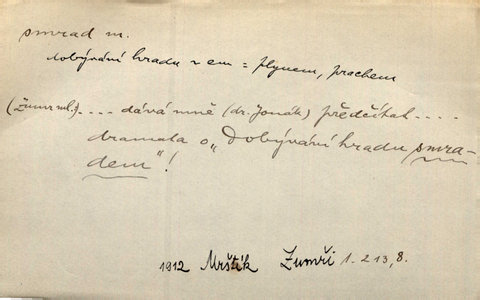 smrad m.
dobývání hradu s em = plynem, prachem
(Zumr ml.) .... dává mně (dr. Jonák) předčítat ....
dramata o „Dobývání hradu smra-
dem"!
1912 Mrštík Zumři 1. 213, 8.